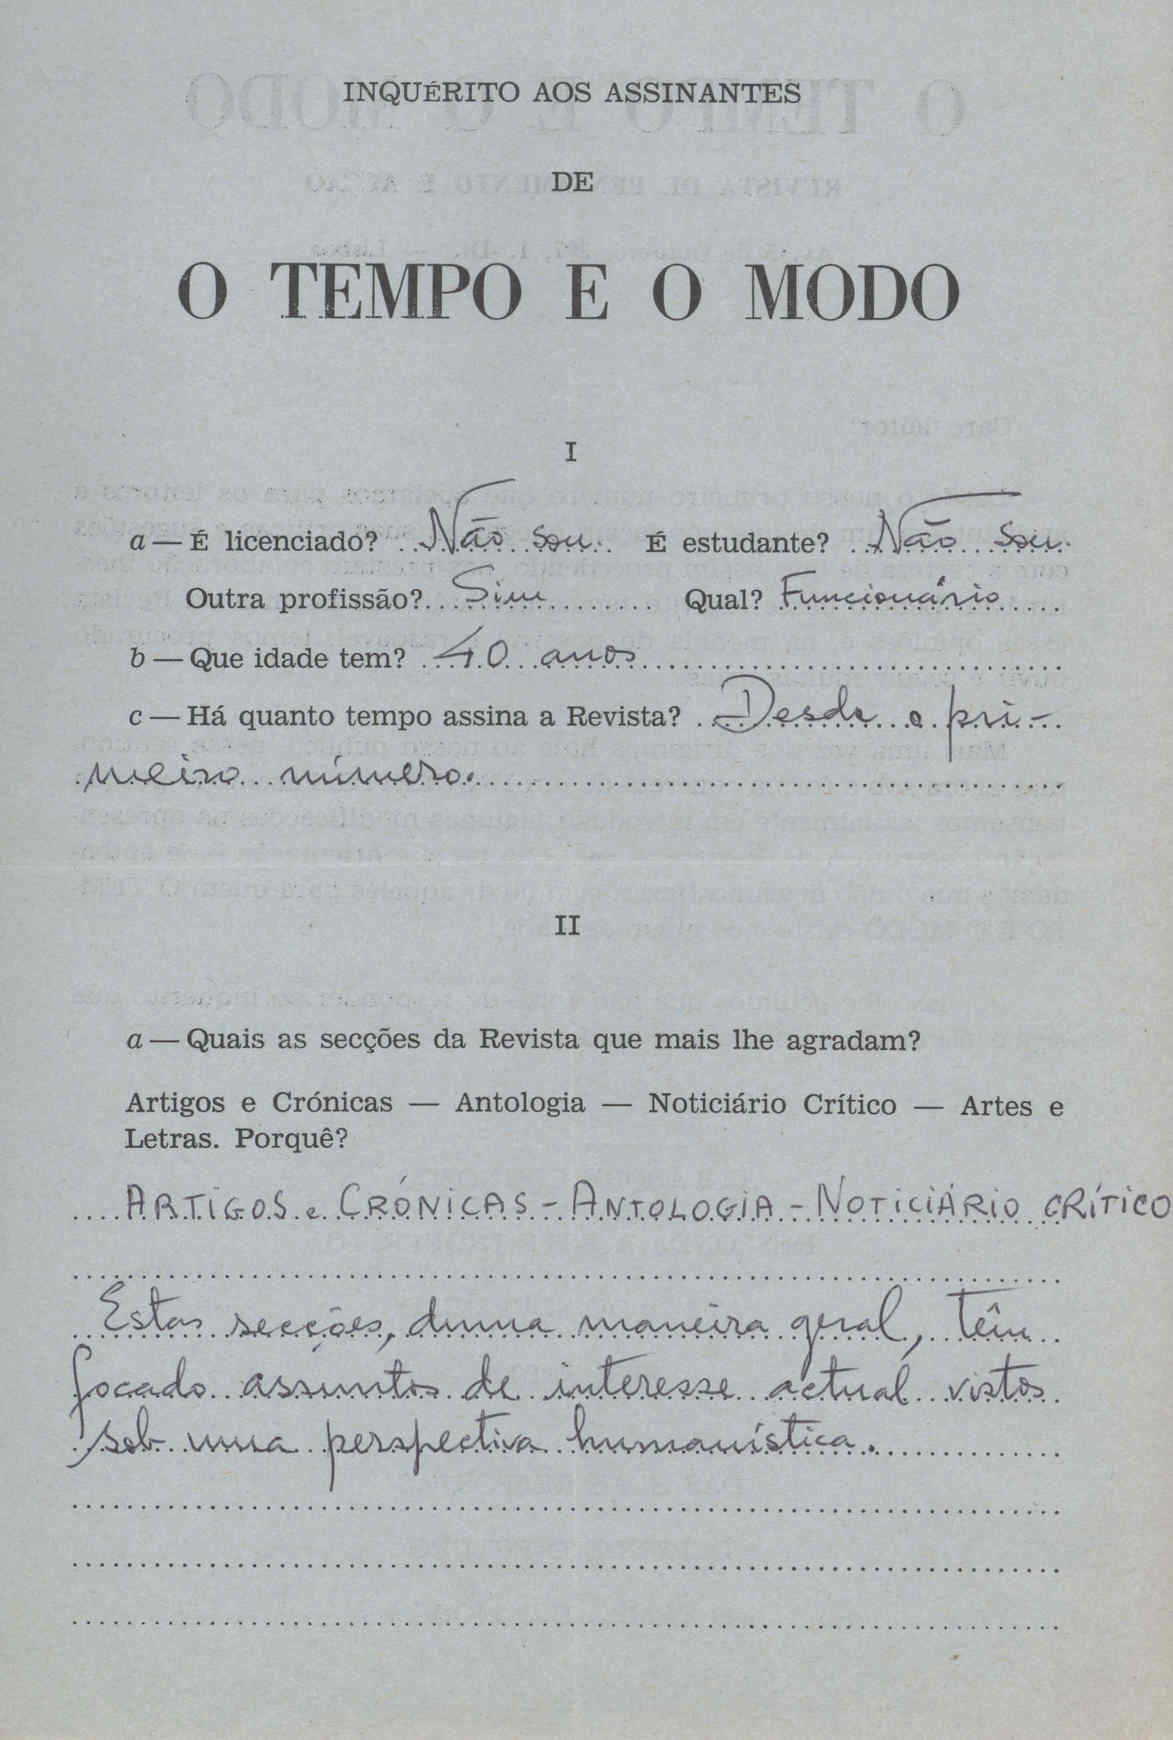 INQUÉRITO AOS ASSINANTES
DE
O TEMPO E O MODO
I
a — É licenciado? Não sou. É estudante? Não sou.
Outra profissão? Sim Qual? Funcionário
b — Que idade tem? 40 anos
c — Há quanto tempo assina a Revista? Desde o pri-
meiro número.
II
a — Quais as secções da Revista que mais lhe agradam?
Artigos e Crónicas — Antologia — Noticiário Crítico — Artes e
Letras. Porquê?
ARTIGOS e CRÓNICAS - ANTOLOGIA - NOTICIÁRIO CRÍTICO
Estas secções, duma maneira geral, têm
focado assuntos de interesse actual vistos
sob uma perspectiva humanística.